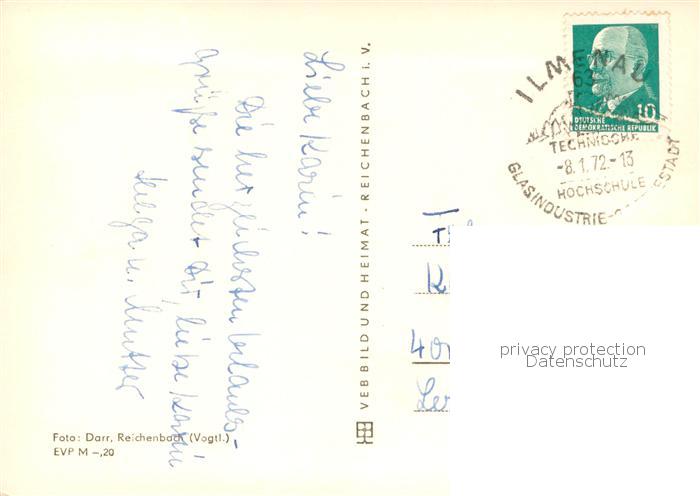 Liebe Karin!
Die herzlichsten Urlaubs-
grüße sendet Dir, liebe Karin
Helga u. Mutter
VEB BILD UND HEIMAT · REICHENBACH i. V.
Foto: Darr, Reichenbach (Vogtl.)
EVP M –,20
ILMENAU
63
TECHNISCHE
-8.1.72.-13
HOCHSCHULE
GLASINDUSTRIE-
10
DEUTSCHE
DEMOKRATISCHE REPUBLIK
privacy protection
Datenschutz